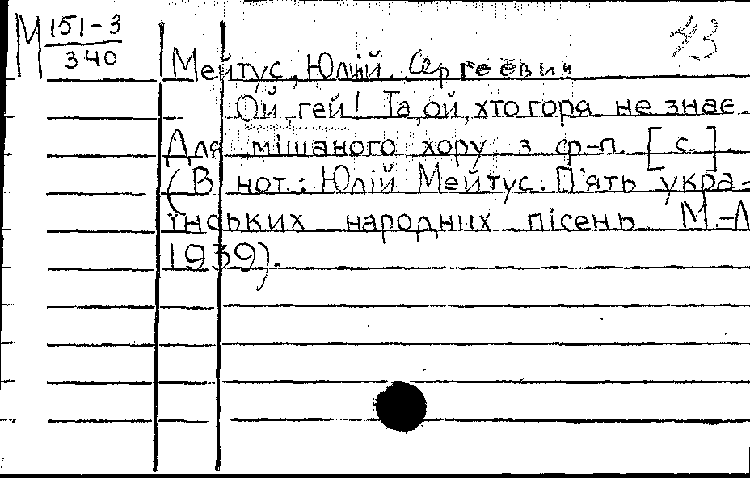 М 151-3
340
43
Мейтус, Юлій Сергеевич
Ой, гей! Та ой, хто горя не знає
Для мішаного хору з ф-п. [с. ]
(В нот.: Юлій Мейтус. П'ять укра-
їнських народних пісень М.-Л
1939).